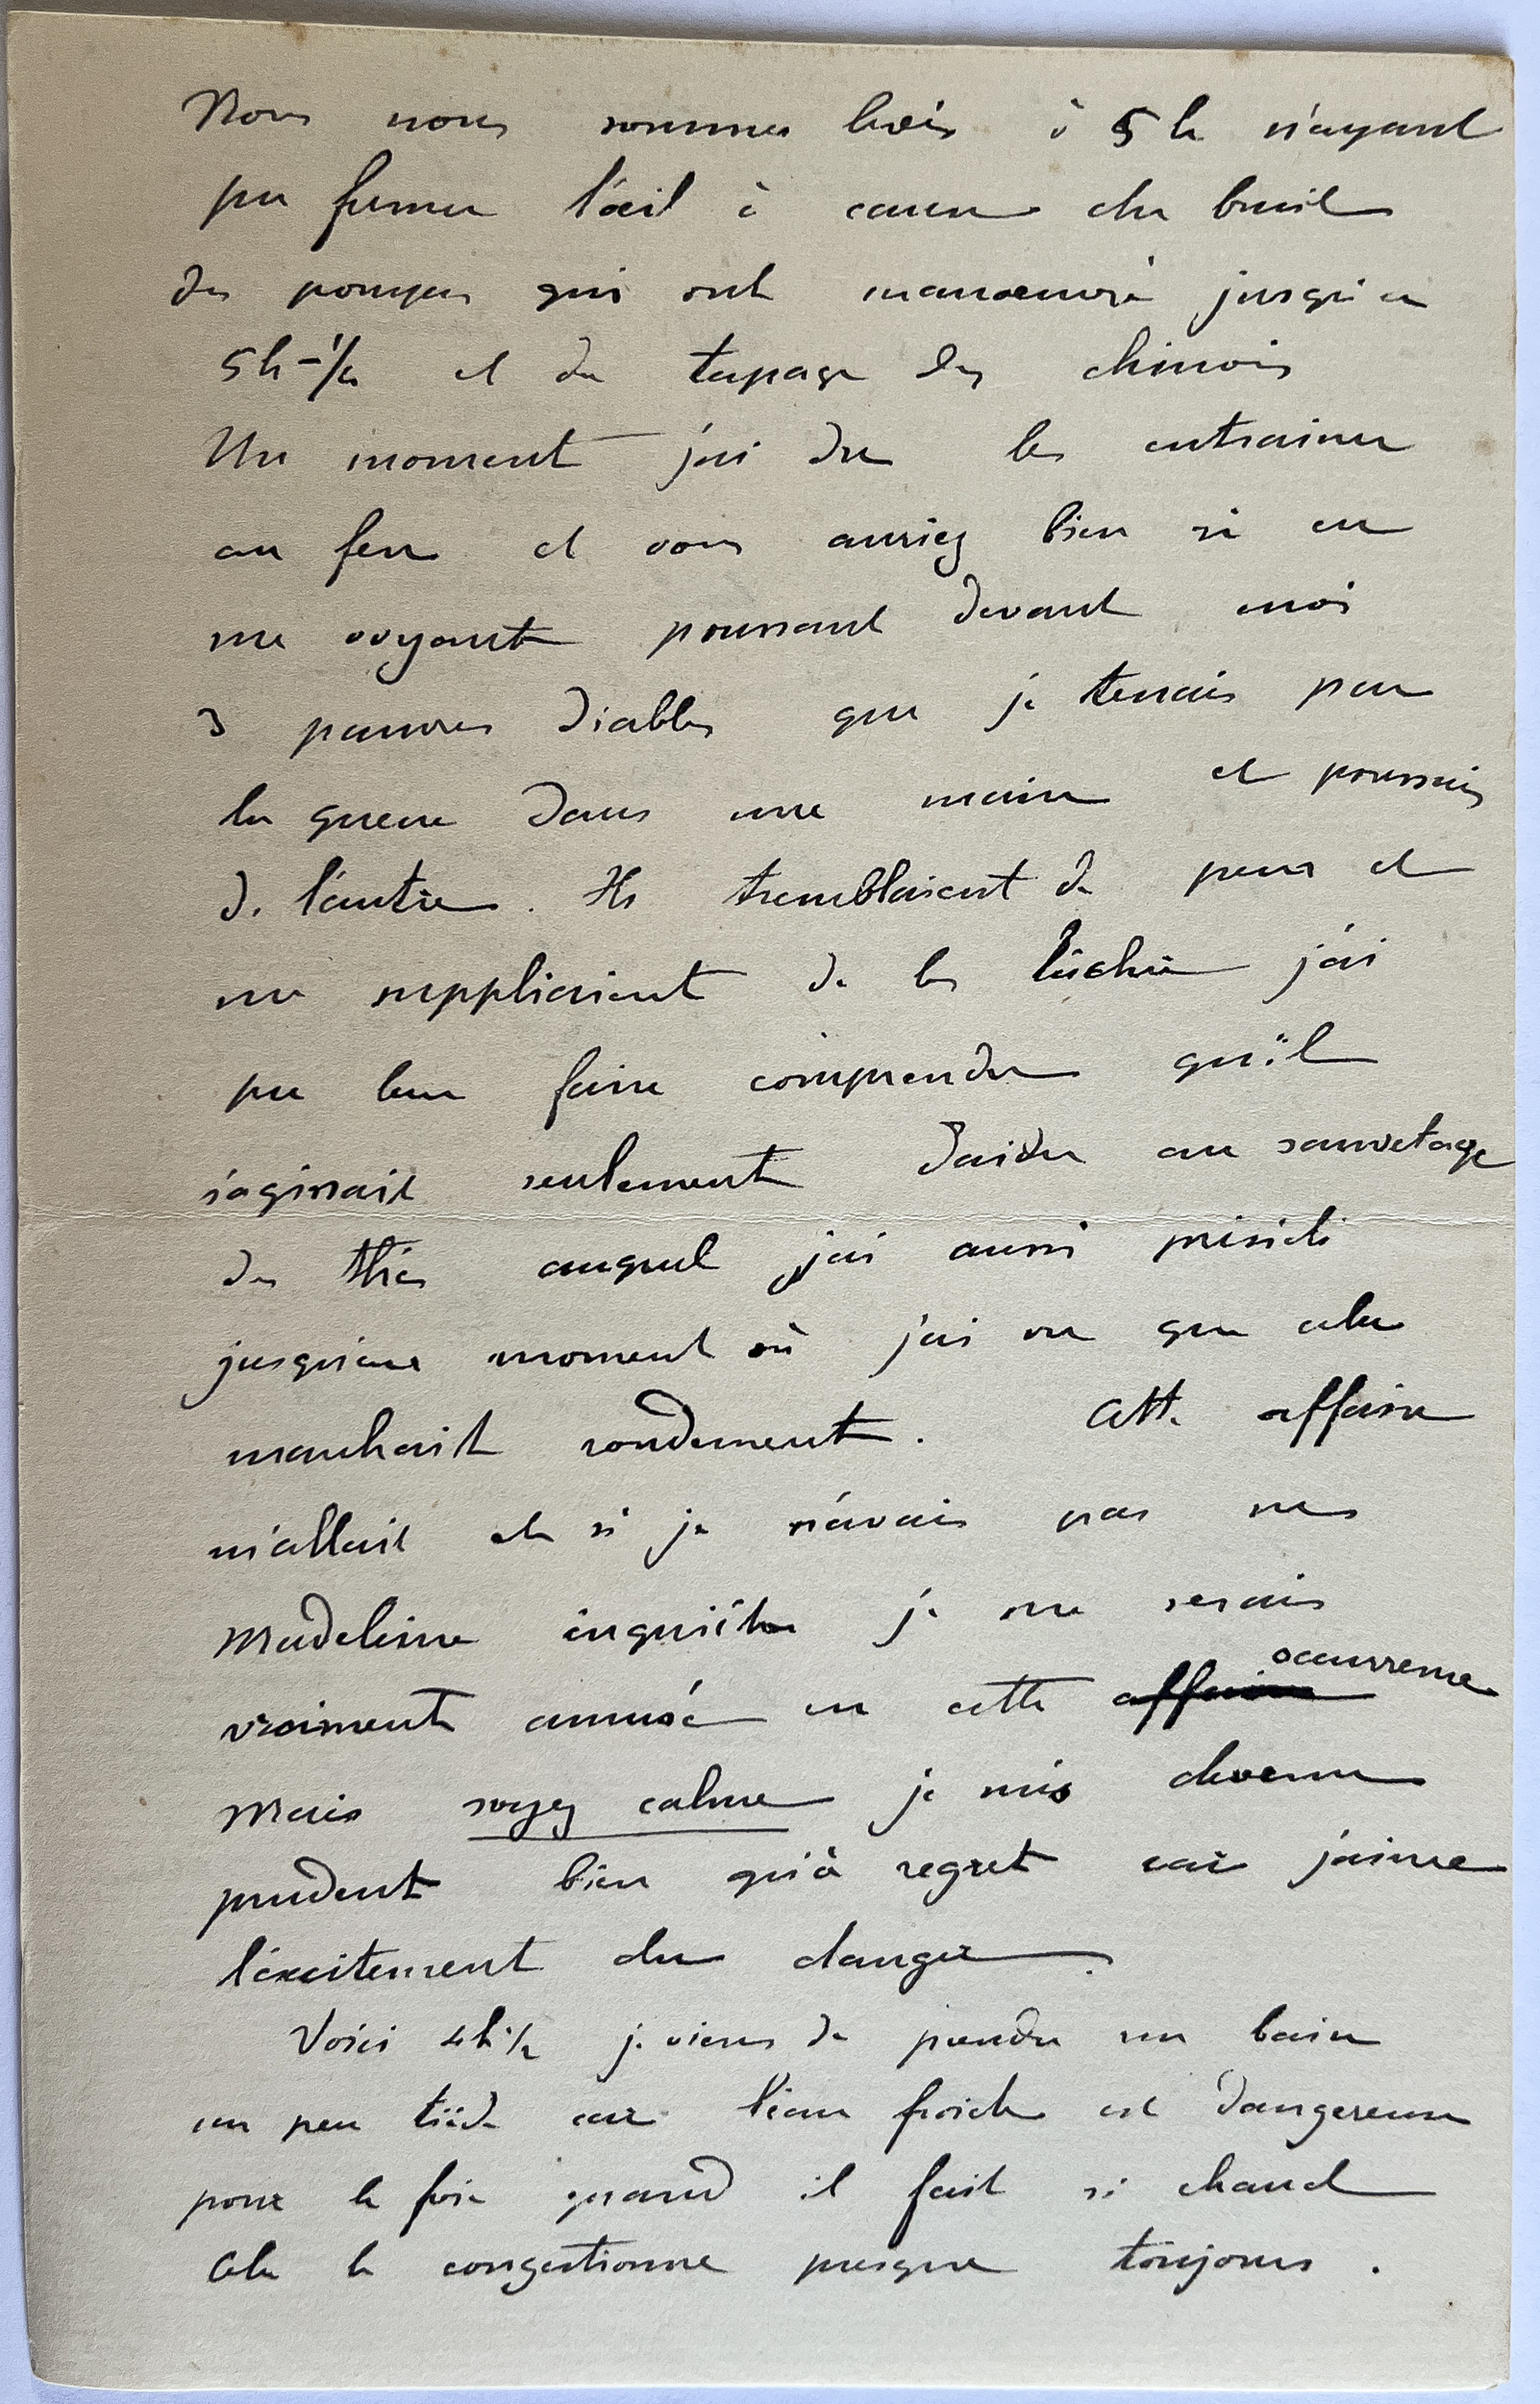 Nous nous sommes levés à 5 h n'ayant
pu fermer l'œil à cause du bruit
des pompes qui ont manœuvré jusqu'à
5 h 1/2 et du tapage des chinois
Un moment j'ai du les entrainer
au feu et vous auriez bien ri en
me voyant poussant devant moi
3 pauvres diables que je tenais par
la queue dans une main et poussais
de l'autre. Ils tremblaient de peur et
me suppliaient de les lâcher j'ai
pu leur faire comprendre qu'il
s'agissait seulement d'aider au sauvetage
des thés auquel j'ai aussi présidé
jusqu'au moment où j'ai vu que cela
marchait rondement. Cette affaire
m'allait et si je n'avais pas ma
Madeleine inquiète je me serais
vraiment amusé en cette affaire occurrence
Mais soyez calme je suis devenu
prudent bien qu'à regret car j'aime
l'excitement du danger.
Voici 4 h 1/2 je viens de prendre un bain
un peu tiède car l'eau froide est dangereuse
pour le foie quand il fait si chaud
Cela le congestionne presque toujours.